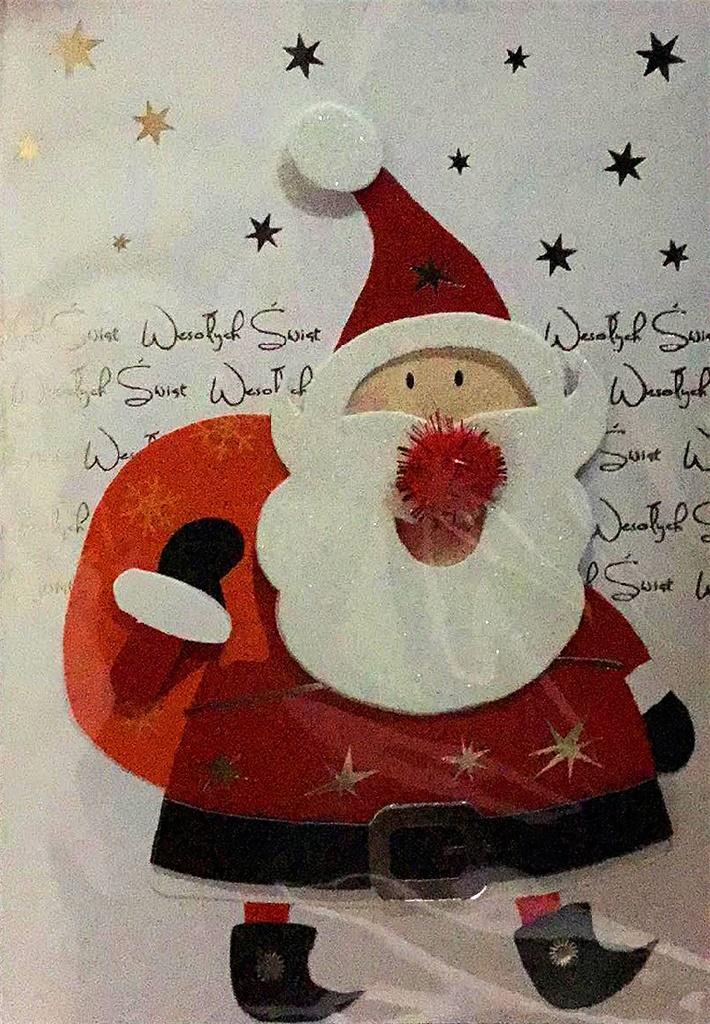 Świąt Wesołych Świąt Wesołych Świąt
Wesołych Świąt Wesołych Wesołych
We Świąt W
Wesołych Ś
Świąt W